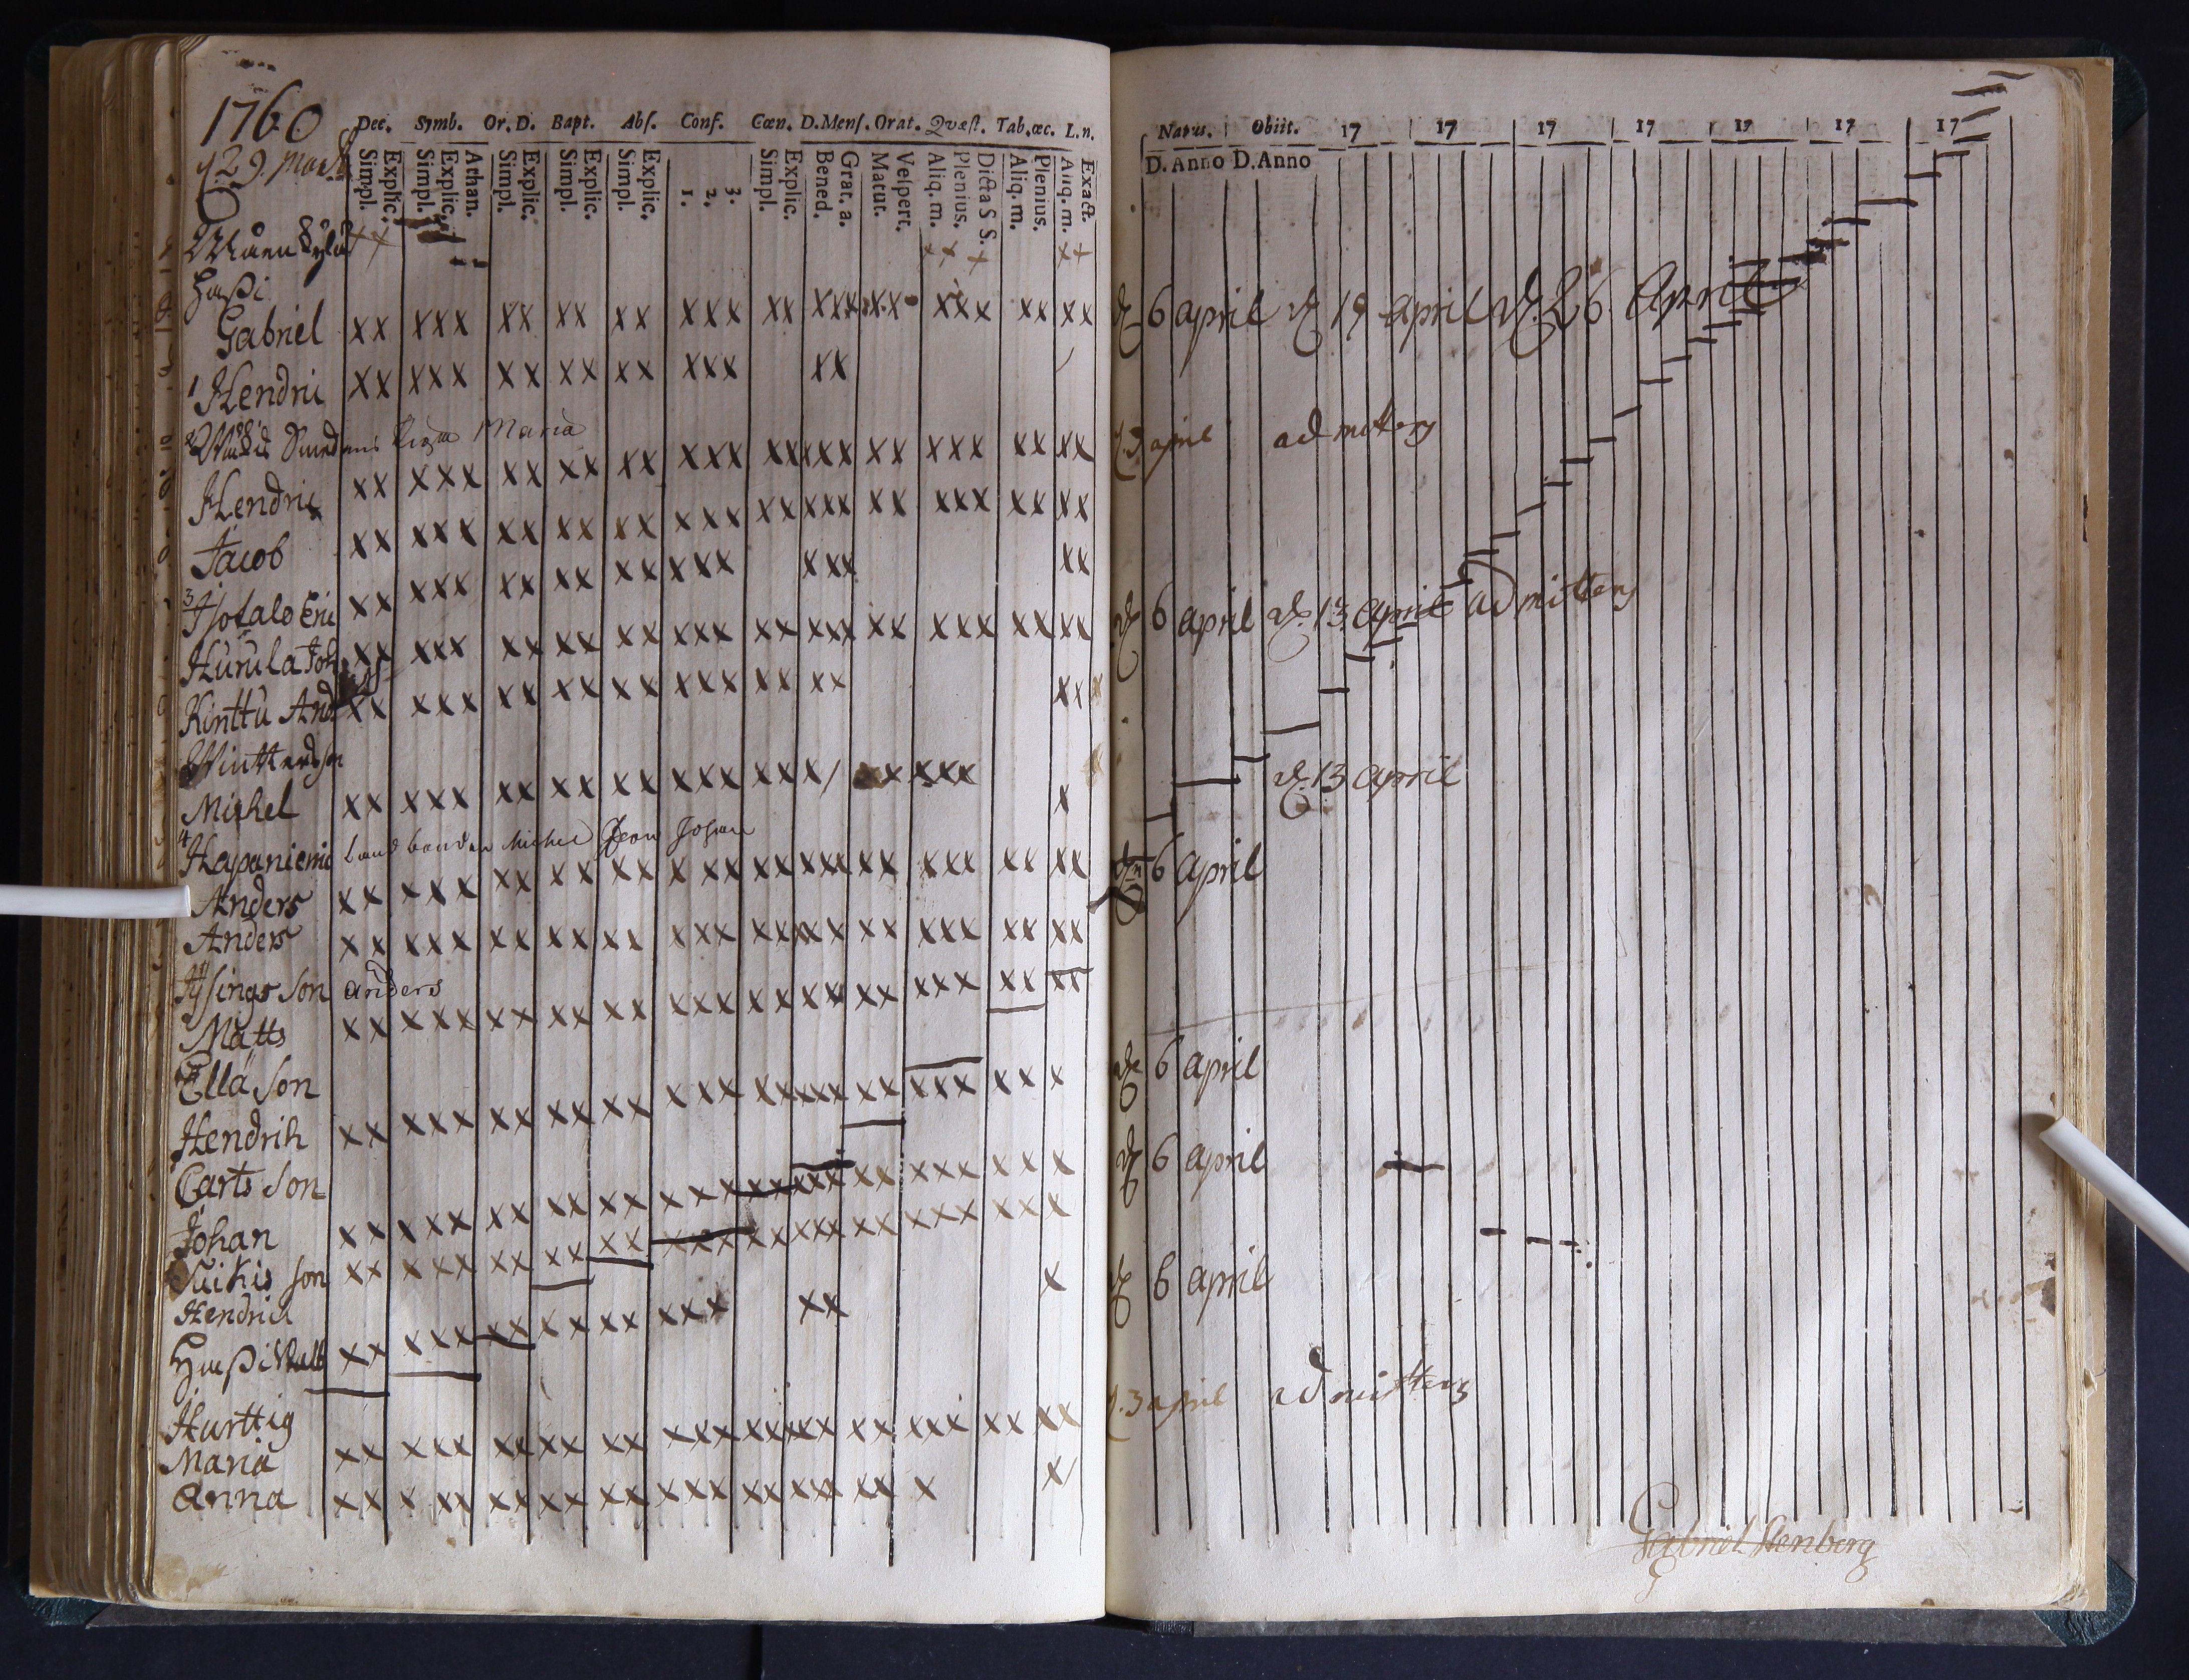 1760
Dec. Symb. Or. D. Bapt. Abſ. Conf. Cœn. D. Menſ. Orat. Qvæſt. Tab. œc. L. n.
d 29. Mart
Simpl. Explic. Simpl. Explic. Athan. Simpl. Explic. Simpl. Explic. Simpl. Explic. 1. 2. 3. Simpl. Explic. Bened. Grat. a. Matut. Veſpert. Aliq. m. Plenius. Dicta S S. Aliq. m. Plenius. Aliq. m. Exact.
xx xx x xx
Haßi
Gabriel xx xxx xx xx xx xxx xx xxx xx xxx xx xx
1 Hendric xx xxx xx xx xx xxx xx
Maria
xx xxx xx xx xx xxx xx xxx xx xxx xx xx
Hendric
Jacob xx xxx xx xx xx xxx xx xxx xx xxx xx xx
3 Isotalo Eric xx xxx xx xx xx xxx xxx xx
Hurula Joh xx xxx xx xx xx xxx xx xxx xx xxx xx xx
Kinttu And xx xxx xx xx xx xxx xx xx xx
Michel xx xxx xx xx xx xxx xx x x xxx x
4 Hapaniemi Landbonden Michel Johan
Anders xx xxx xx xx xx xxx xx xxx xx xxx xx xx
Anders xx xxx xx xx xx xxx xx xxx xx xxx xx xx
Jysings son anders
Matts xx xxx xx xx xx xxx xx xxx xx xxx xx xx
Ella son
Hendrih xx xxx xx xx xx xxx xx xxx xx xxx xx x
Carts son
Johan xx xxx xx xx xx xxx xx xxx xx xxx xx x
Suikis son xx xxx xx xx xx xxx xx xxx xx xxx xx x
Hendrich
xx xxx xx xx xx xxx xx x
Hurttig
Maria xx xxx xx xx xx xxx xx xxx xx xxx xx xx
Anna xx xxx xx xx xx xxx xx xxx xx x x
Natus. Obiit. 17 17 17 17 17 17 17
D. Anno D. Anno
d 6 april d 19 april d. 26 April
d. 3 april admitteng
d 6 april d. 13 april admitteng
d. 13 april
d 6 april
d 6 april
d 6 april
d 6 april
d. 3 april admitteng
Gabriel Stenberg